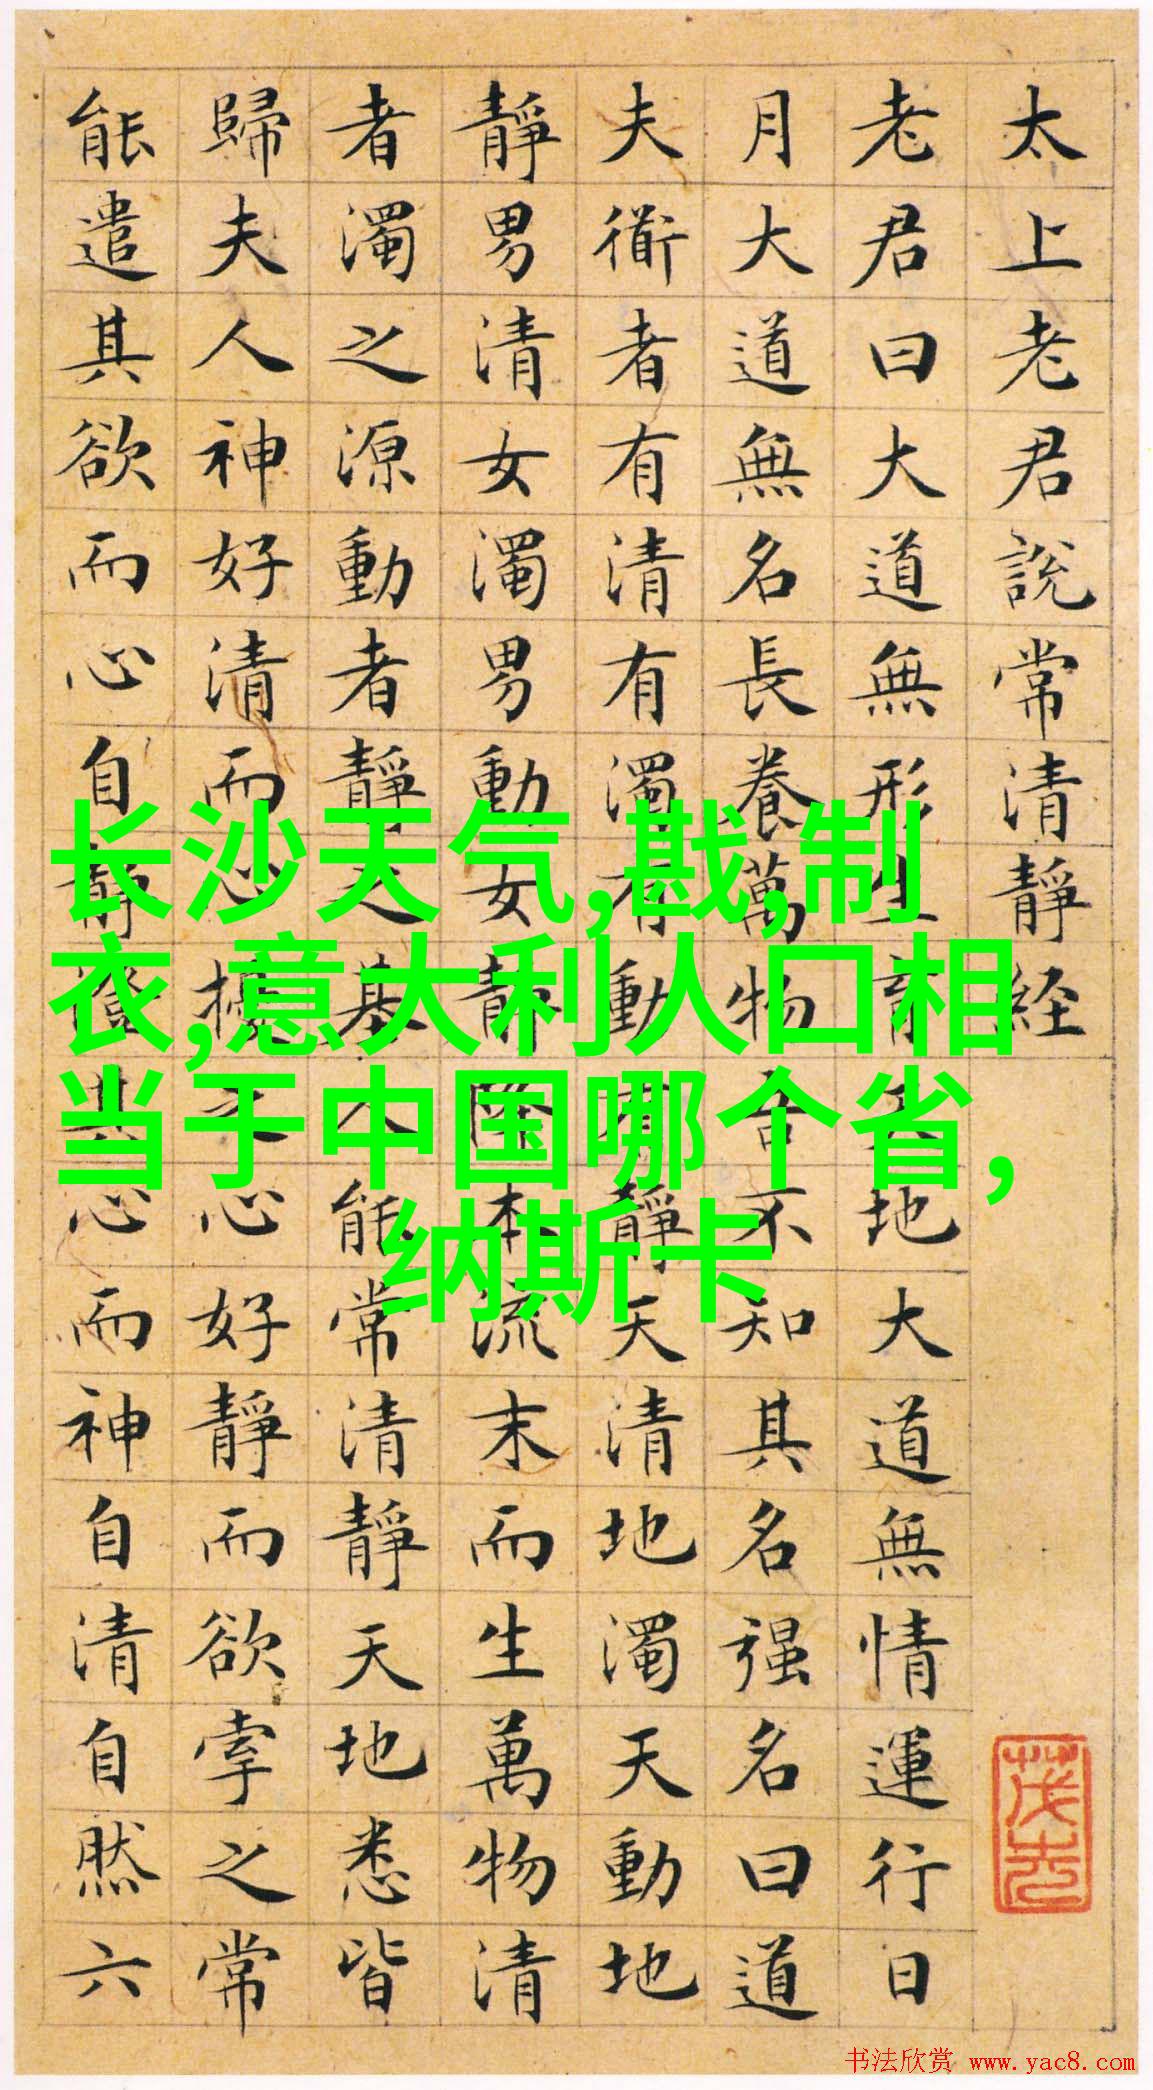 太上老君說常清靜経
老君曰大道無形生育天地大道無情運行日
月大道無名長養萬物吾不知其名强名曰道
夫衜者有清有濁有動有靜天清地濁天動地
靜男清女濁男動女靜降本流末而生萬物清
者濁之源動者靜之基人能常清靜天地悉皆
歸夫人神好清而心擾之心好靜而欲牽之常
能遣其欲而心自靜澄其心而神自清自然六
长沙天气,戡,制
衣,意大利人口相
当于中国哪个省,
纳斯卡
书法欣赏 www.yac8.com